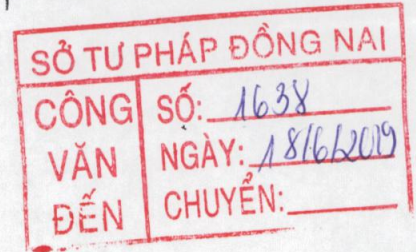 SỞ TƯ PHÁP ĐỒNG NAI
CÔNG VĂN ĐẾN
SỐ: 1638
NGÀY: 18/6/2019
CHUYỂN: